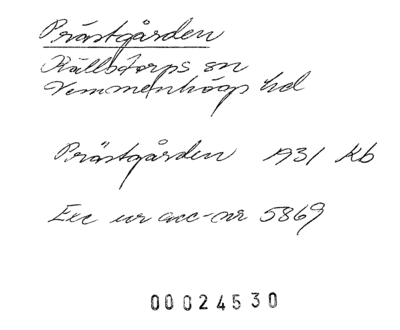 Prästgården
Källstorps sn
Vemmenhögs hd
Prästgården 1931 Kb
Exc ur acc-nr 5869
00024530